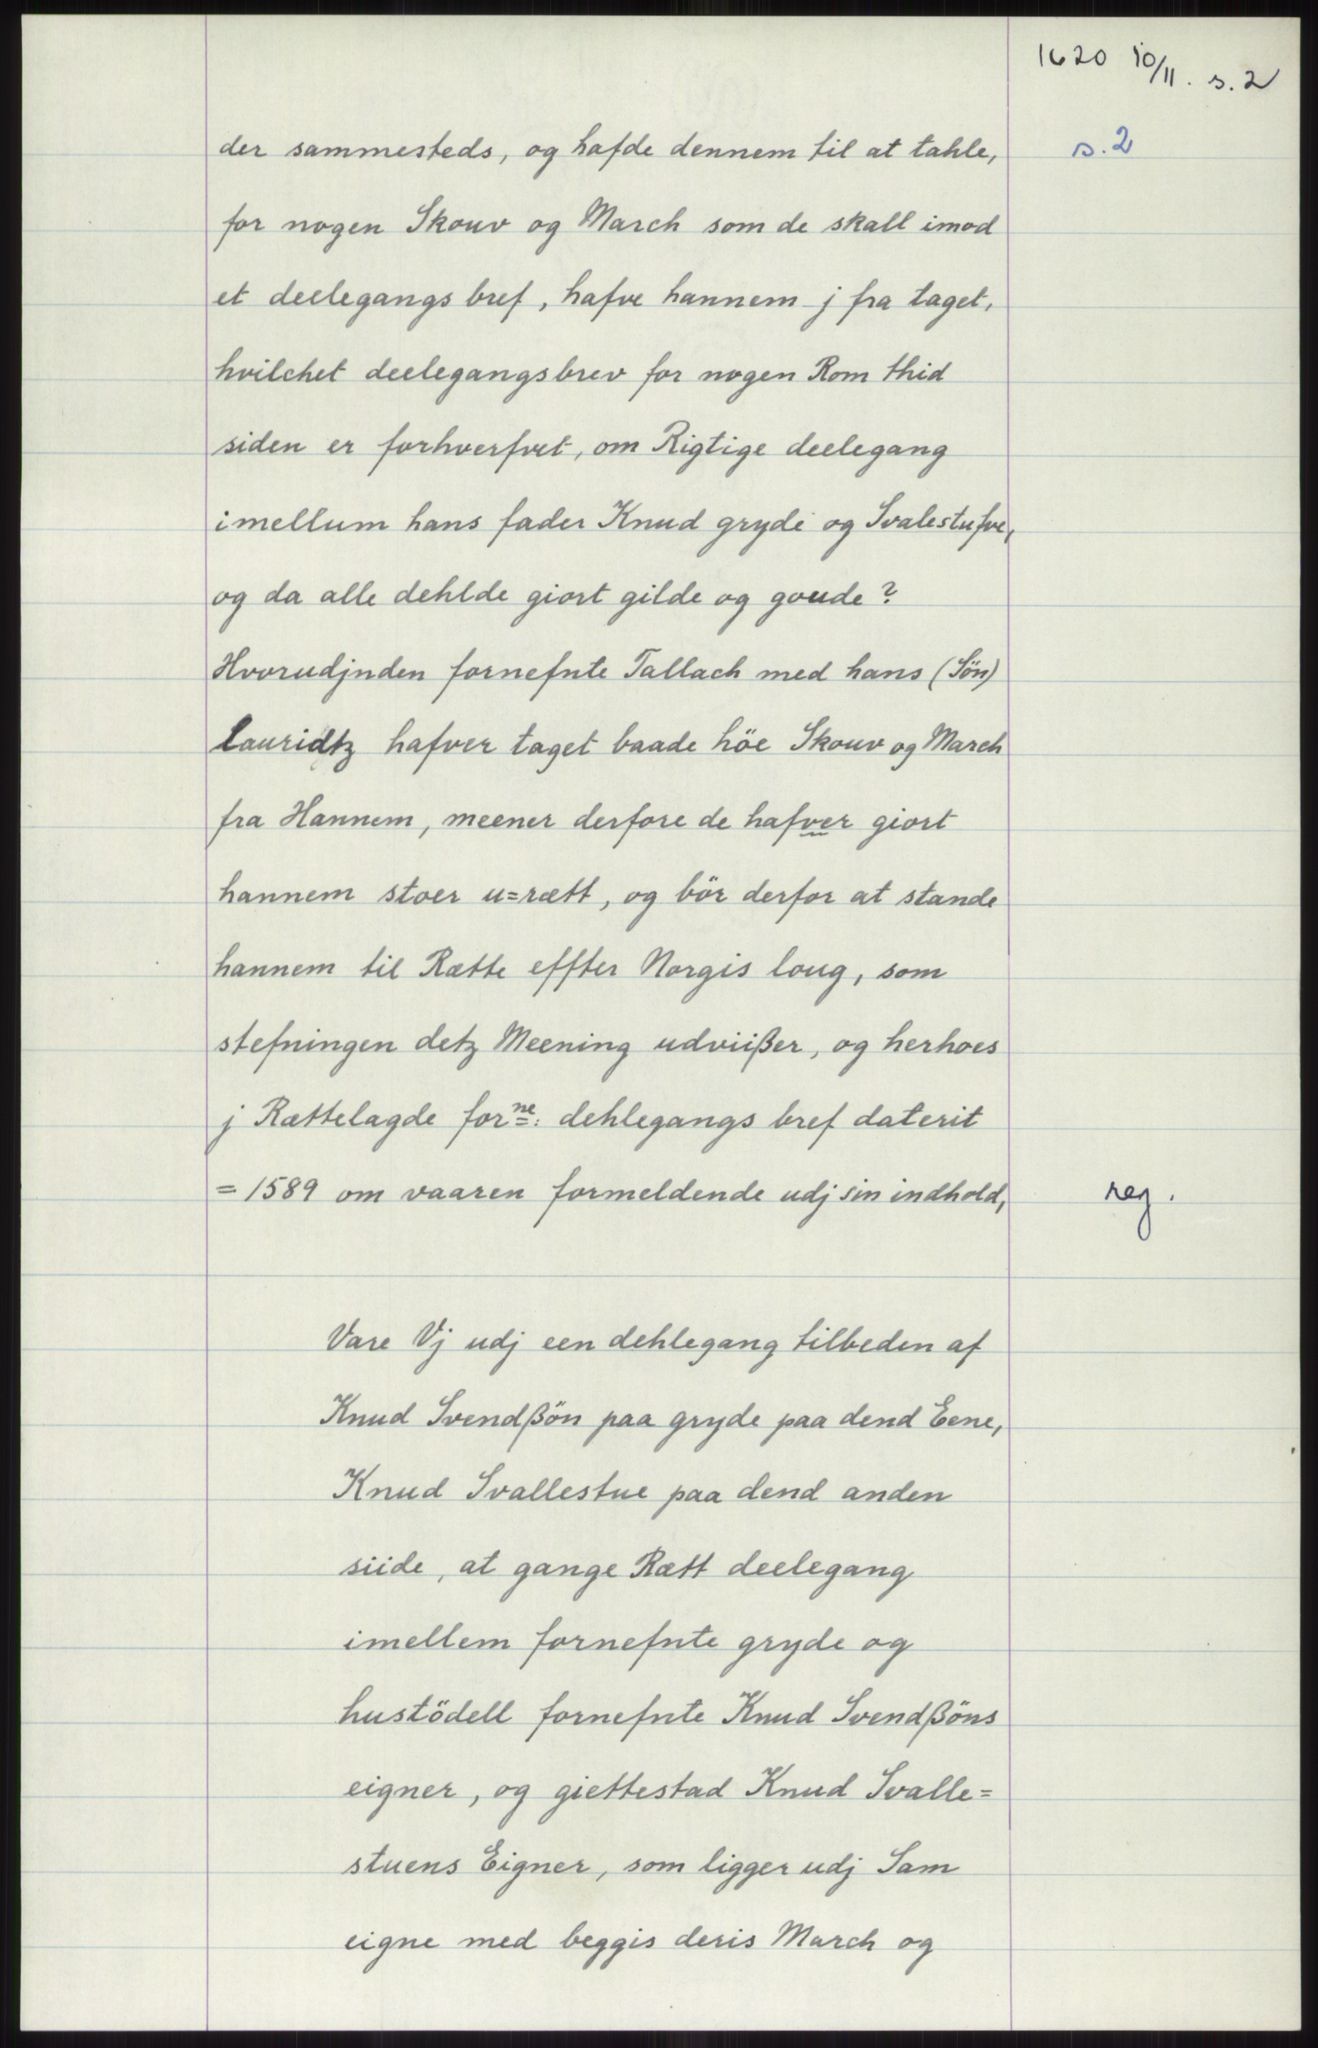 1620 10/11. s. 2
der sammesteds, og hafde dennem til at tahle,
s. 2
for nogen Skouv og March som de skall imod
et deelegangs bref, hafve hannem j fra taget,
hvilchet deelegangsbrev for nogen Rom thid
siden er forhverfvet, om Rigtige deelegang
imellum hans fader Knud gryde og Svalestufve,
og da alle dehlde giort gilde og goude?
Hvorudjnden fornefnte Tallach med hans (Sön)
Lauridtz hafver taget baade höe Skouv og March
fra Hannem, meener derfore de hafver giort
hannem stoer u=rætt, og bör derfor at stande
hannem til Rætte effter Norgis loug, som
stefningen detz Meening udviißer, og herhoes
j Rættelagde forne: dehlegangs bref daterit
=1589 om vaaren formeldende udj sin indhold,
reg.
Vare Vj udj een dehlegang tilbeden af
Knud Svendßön paa gryde paa dend Eene,
Knud Svallestue paa dend anden
siide, at gange Rætt deelegang
imellem fornefnte gryde og
hustödell fornefnte Knud Svendßöns
eigner, og giettestad Knud Svalle=
stuens Eigner, som ligger udj Sam
eigne med beggis deris March og